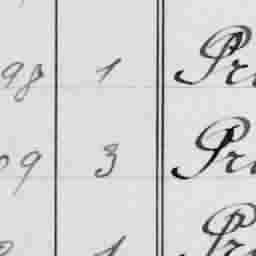 98 1 Pr
09 3 Pr
1 Pr